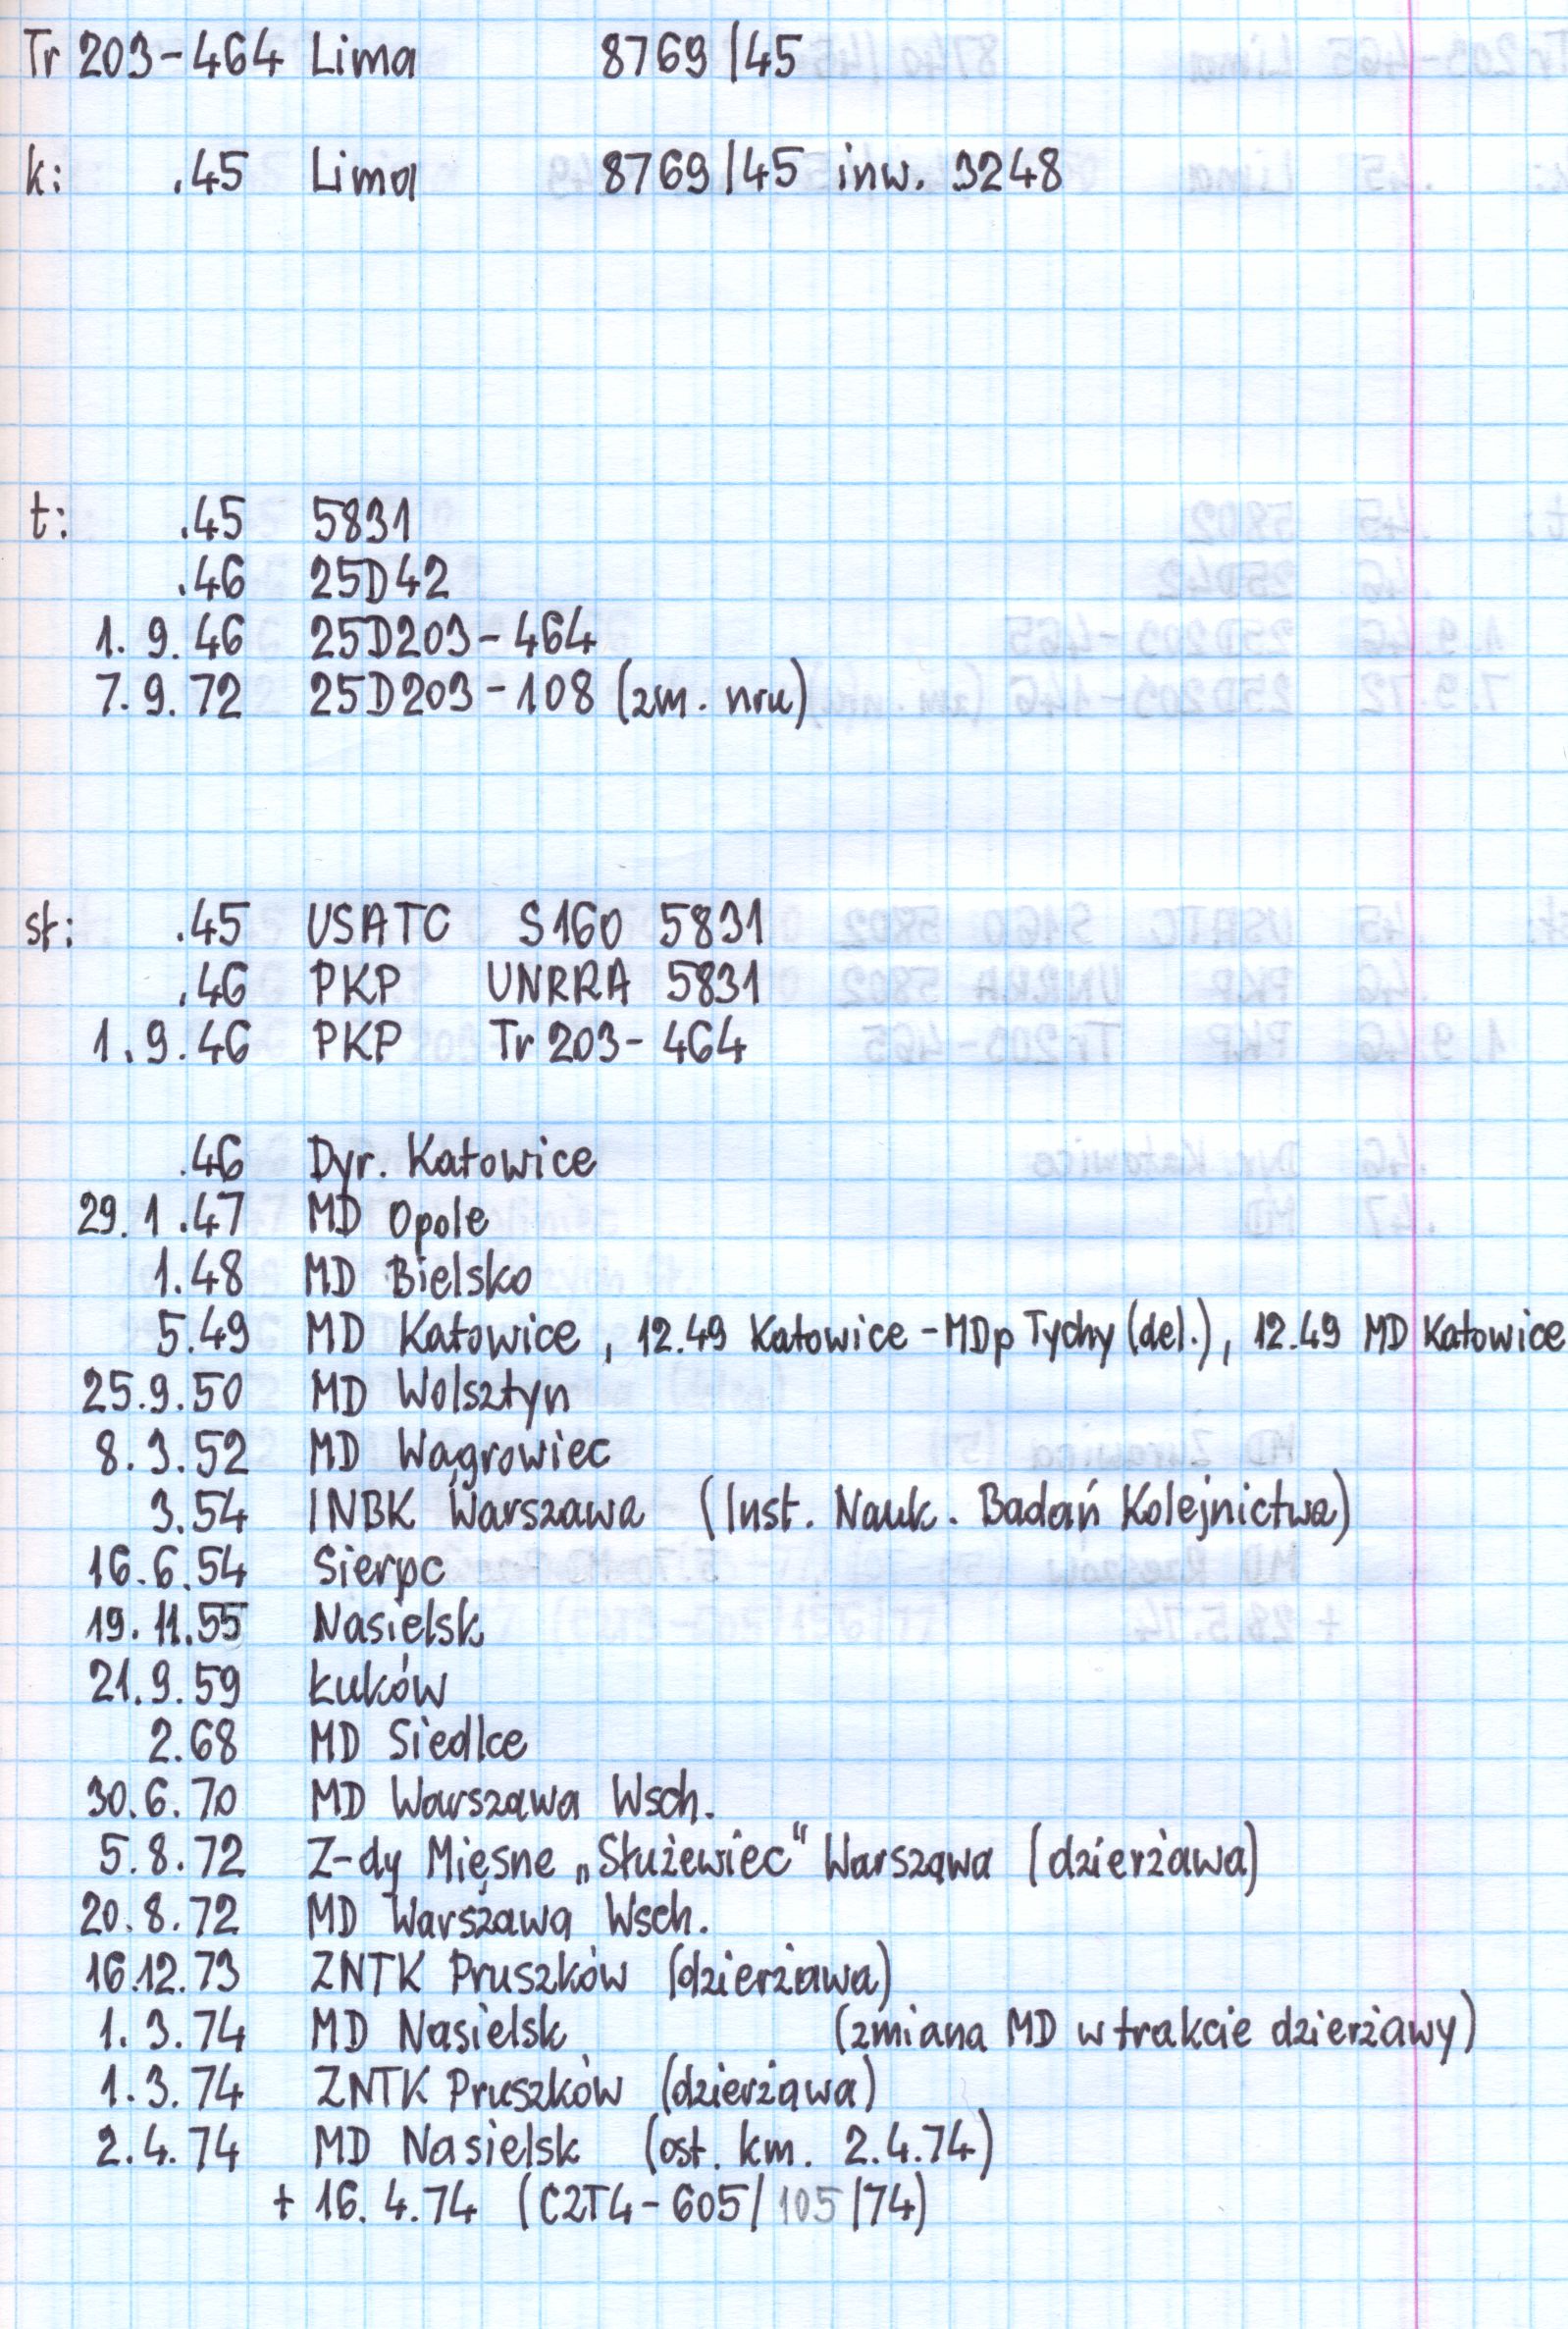 Tr 203-464 Lima 8769/45
k: .45 Lima 8769/45 inw. 3248
t: .45 5831
.46 25D42
1.9.46 25D203-464
7.9.72 25D203-108 (zm. nru)
st: .45 USATC S160 5831
.46 PKP UNRRA 5831
1.9.46 PKP Tr 203-464
.46 Dyr. Katowice
29.1.47 MD Opole
1.48 MD Bielsko
5.49 MD Katowice, 12.49 Katowice-MDp Tychy (del.), 12.49 MD Katowice
25.9.50 MD Wolsztyn
8.3.52 MD Wągrowiec
3.54 INBK Warszawa (Inst. Nauk. Badań Kolejnictwa)
16.6.54 Sierpc
19.11.55 Nasielsk
21.9.59 Łuków
2.68 MD Siedlce
30.6.70 MD Warszawa Wsch.
5.8.72 Z-dy Mięsne „Służewiec" Warszawa (dzierżawa)
20.8.72 MD Warszawa Wsch.
16.12.73 ZNTK Pruszków (dzierżawa)
1.3.74 MD Nasielsk (zmiana MD w trakcie dzierżawy)
1.3.74 ZNTK Pruszków (dzierżawa)
2.4.74 MD Nasielsk (ost. km. 2.4.74)
+ 16.4.74 (C2T4-605/105/74)